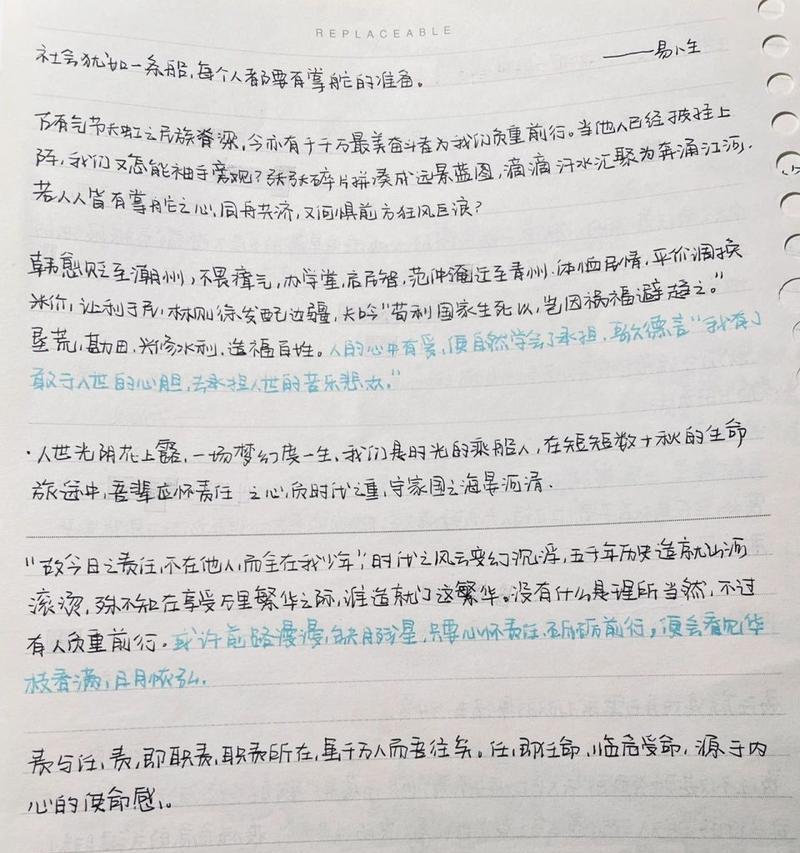 REPLACEABLE
社会犹如一条船,每个人都要有掌舵的准备。 ——易卜生
万有气节长虹之民族脊梁,今亦有千千万最美奋斗者为我们负重前行。当他人已经披挂上
阵,我们又怎能袖手旁观?张张碎片拼凑成远景蓝图,滴滴汗水汇聚为奔涌江河.
若人人皆有掌舵之心,同舟共济,又何惧前方狂风巨浪?
韩愈贬至潮州,不畏瘴气,办学堂,启民智,范仲淹迁至青州.体恤民情,平价调换
米价,让利于民,林则徐发配边疆,长吟“苟利国家生死以,岂因祸福避趋之。”
垦荒,勘田,兴修水利,造福百姓.人的心中有爱,便自然学会了承担,歌德言“我有了
敢于入世的心胆,去承担人世的苦乐悲欢.”
·人世光阴花上露,一场梦幻度一生,我们是时光的乘船人,在短短数十秋的生命
旅途中,吾辈应怀责任之心,负时代之重,守家国之海晏河清.
“故今日之责任,不在他人,而全在我少年”,时代之风云变幻沉浮,五千年历史造就山河
滚烫,殊不知在享受万里繁华之际,谁造就了这繁华。没有什么是理所当然,不过
有人负重前行.或许前路漫漫,缺月残星,只要心怀责任.砥砺前行,便会看见华
枝春满,日月恢弘.
责与任,责,即职责,职责所在,虽千万人而吾往矣。任,即任命,临危受命,源于内
心的使命感。